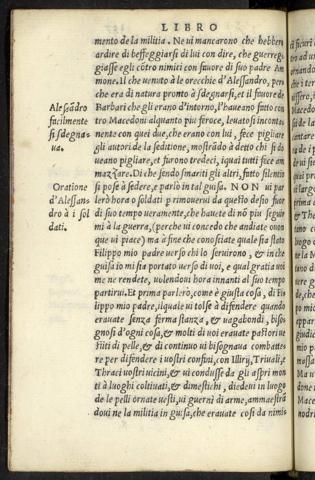 LIBRO
mento de la militia. Ne ui mancarono che hebbero
ardire di beffeggiarsi di lui con dire, che guerreg
giasse egli cōtro i nimici con fauore di suo padre Am
mone. Il che uenuto à le orecchie d'Alessandro, per
che era di natura pronto à sdegnarsi, et il fauore de
Barbari che gli erano d'intorno, l'haueano fatto con
tro Macedoni alquanto piu feroce, leuatosi incontα
nente con quei due, che erano con lui, fece pigliare
gli autori de la seditione, mostrādo à detto chi si do
ueano pigliare, et furono tredeci, iquai tutti fece am
mazzare. Di che sendo smariti gli altri, fatto silentio
si pose à sedere, e parlò in tal guisa. NON ui par
lerò hora o soldati p rimouerui da questo desio fuor
di suo tempo ueramente, che hauete di nō piu seguir
mi à la guerra, (perche ui concedo che andiate ouun
que ui piace) ma à fine che conosciate quale sia stato
Filippo mio padre uerso chi lo seruirono, & in che
guisa io mi sia portato uerso di uoi, e qual gratia uoi
me ne rendete, uolendoui hora innanti al suo tempo
partirui. Et prima parlerò, come è giusta cosa, di Fi
lippo mio padre, ilquale ui tolse à difendere quando
erauate senza ferma stanza, & uagabondi, biso
gnosi d'ogni cosa, & molti di uoi erauate pastori ue
stiti di pelle, & di continuo ui bisognaua combatte
re per difendere i uostri confini, con Illirij, Triuali, e
Thraci uostri uicini, & ui condusse da gli aspri mon
ti à luoghi coltiuati, & dimestichi, diedeui in luogo
de le pelli ornate uesti, ui guernì di arme, ammaestrā
doui ne la militia in guisa, che erauate cosi da nimi-
Aleſsādro
facilmente
si sdegna-
ua.
Oratione
d'Alessan-
dro à i sol
dati.